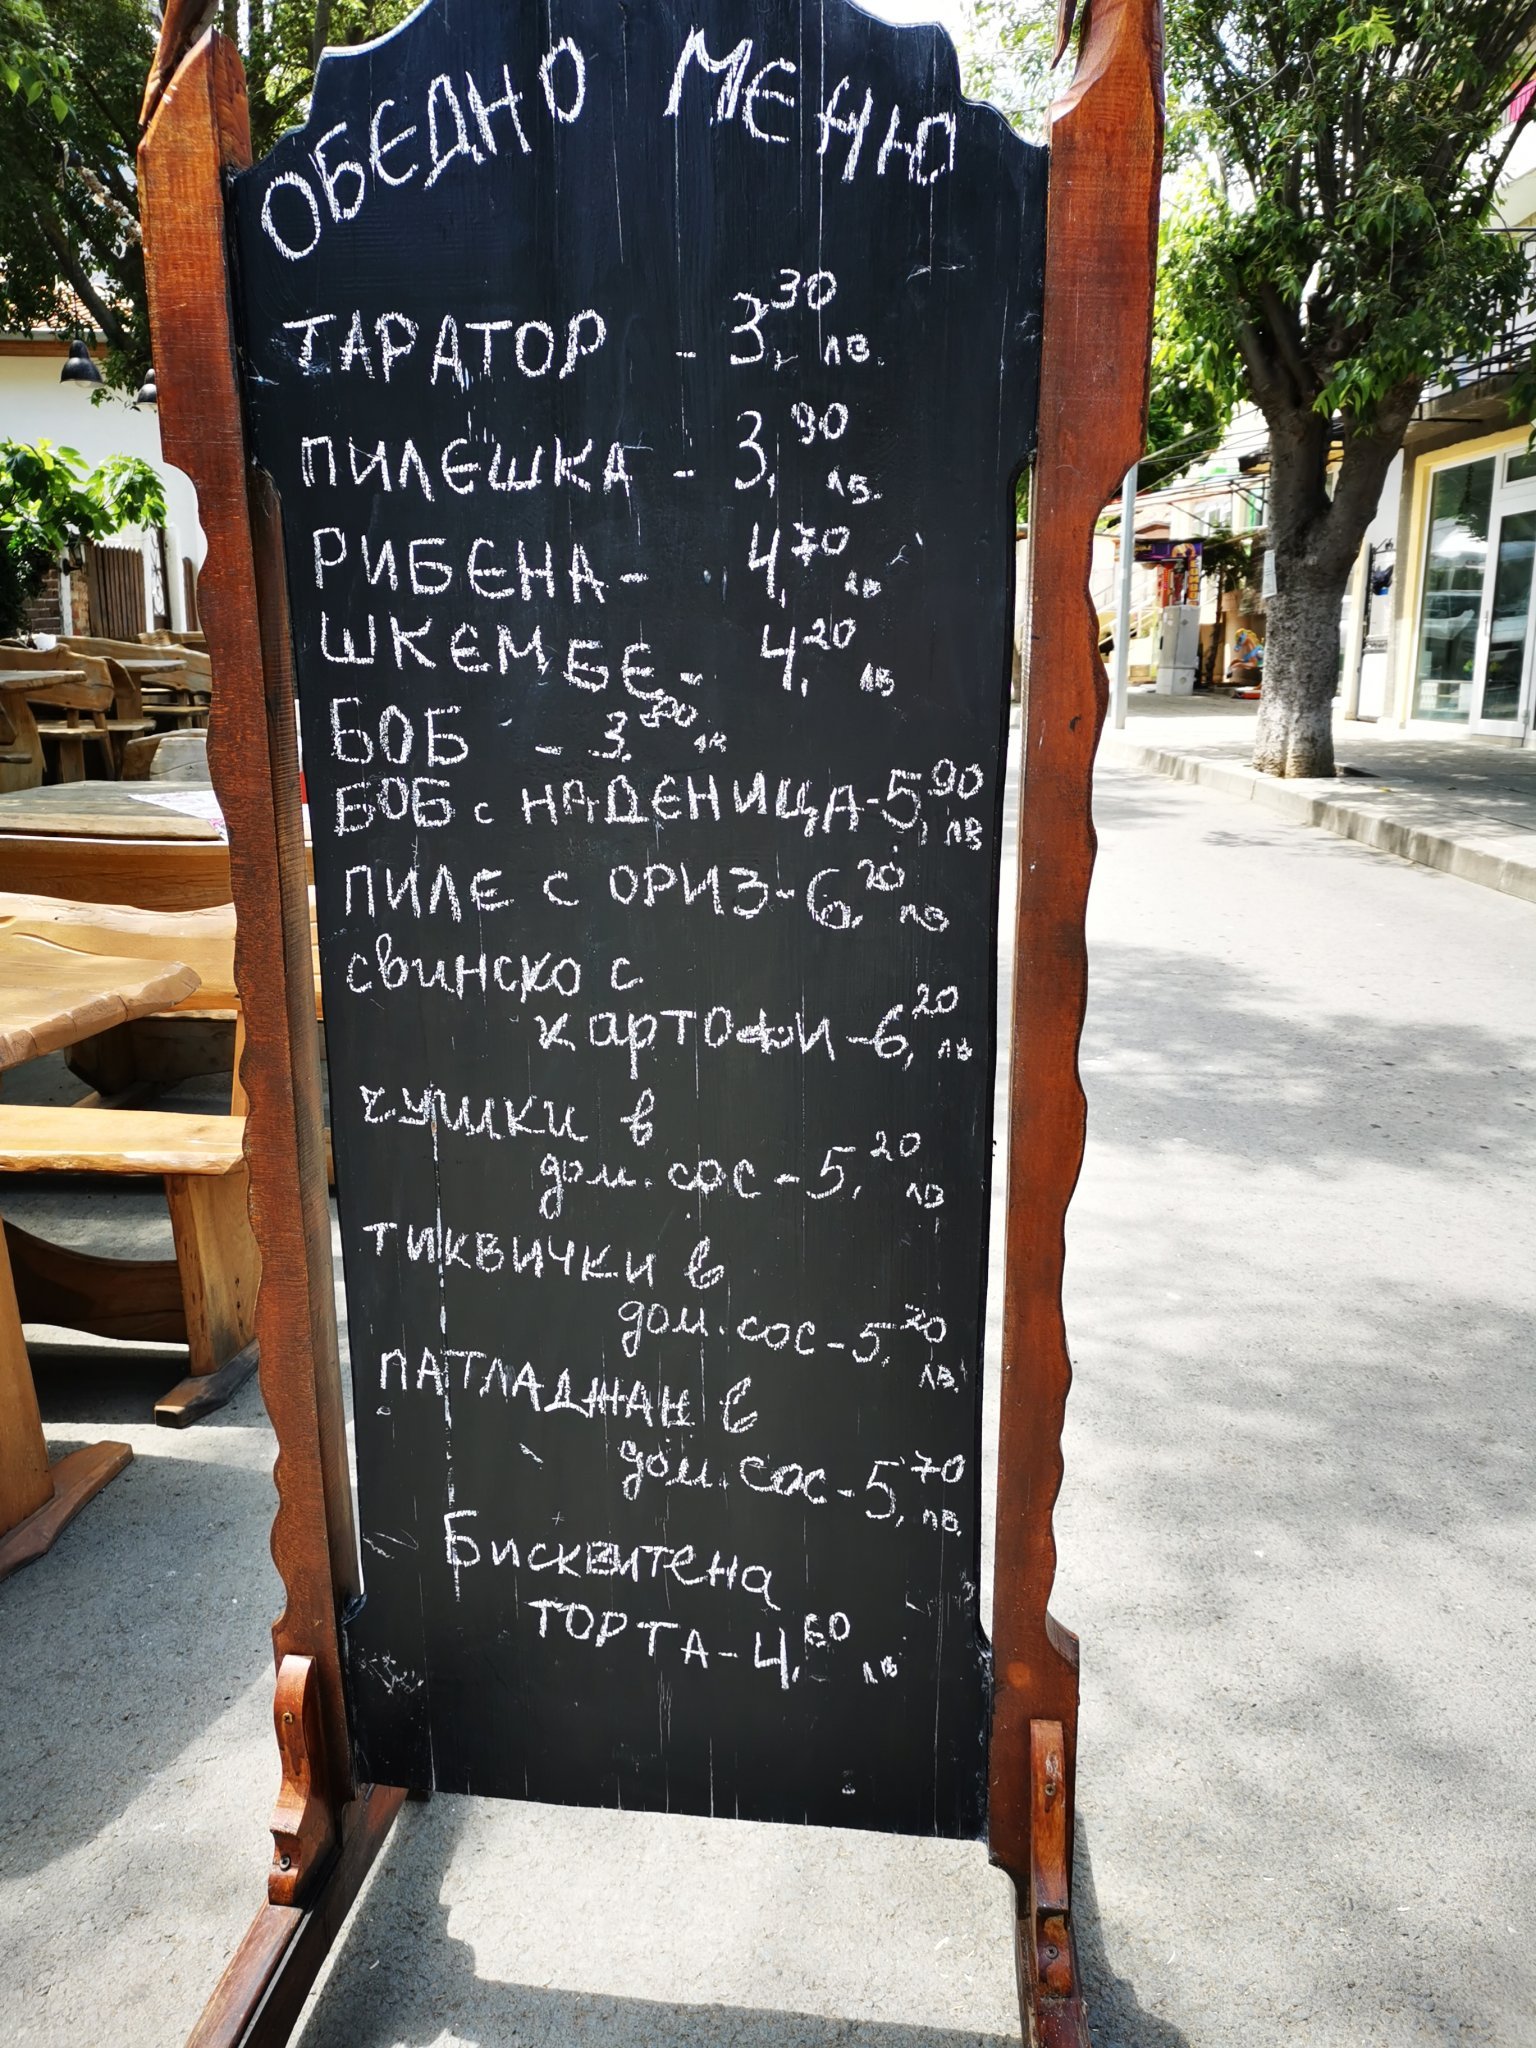 ОБЕДНО МЕНЮ
ТАРАТОР - 3,30 лв.
ПИЛЕШКА - 3,90 лв.
РИБЕНА - 4,70 лв
ШКЕМБЕ - 4,20 лв
БОБ - 3,80 лв
БОБ с НАДЕНИЦА - 5,90 лв
ПИЛЕ С ОРИЗ - 6,20 лв
свинско с
картофи - 6,20 лв
чушки в
дом. сос - 5,20 лв
тиквички в
дом. сос - 5,20 лв.
ПАТЛАДЖАН в
дом. сос - 5,70 лв.
Бисквитена
ТОРТА - 4,60 лв